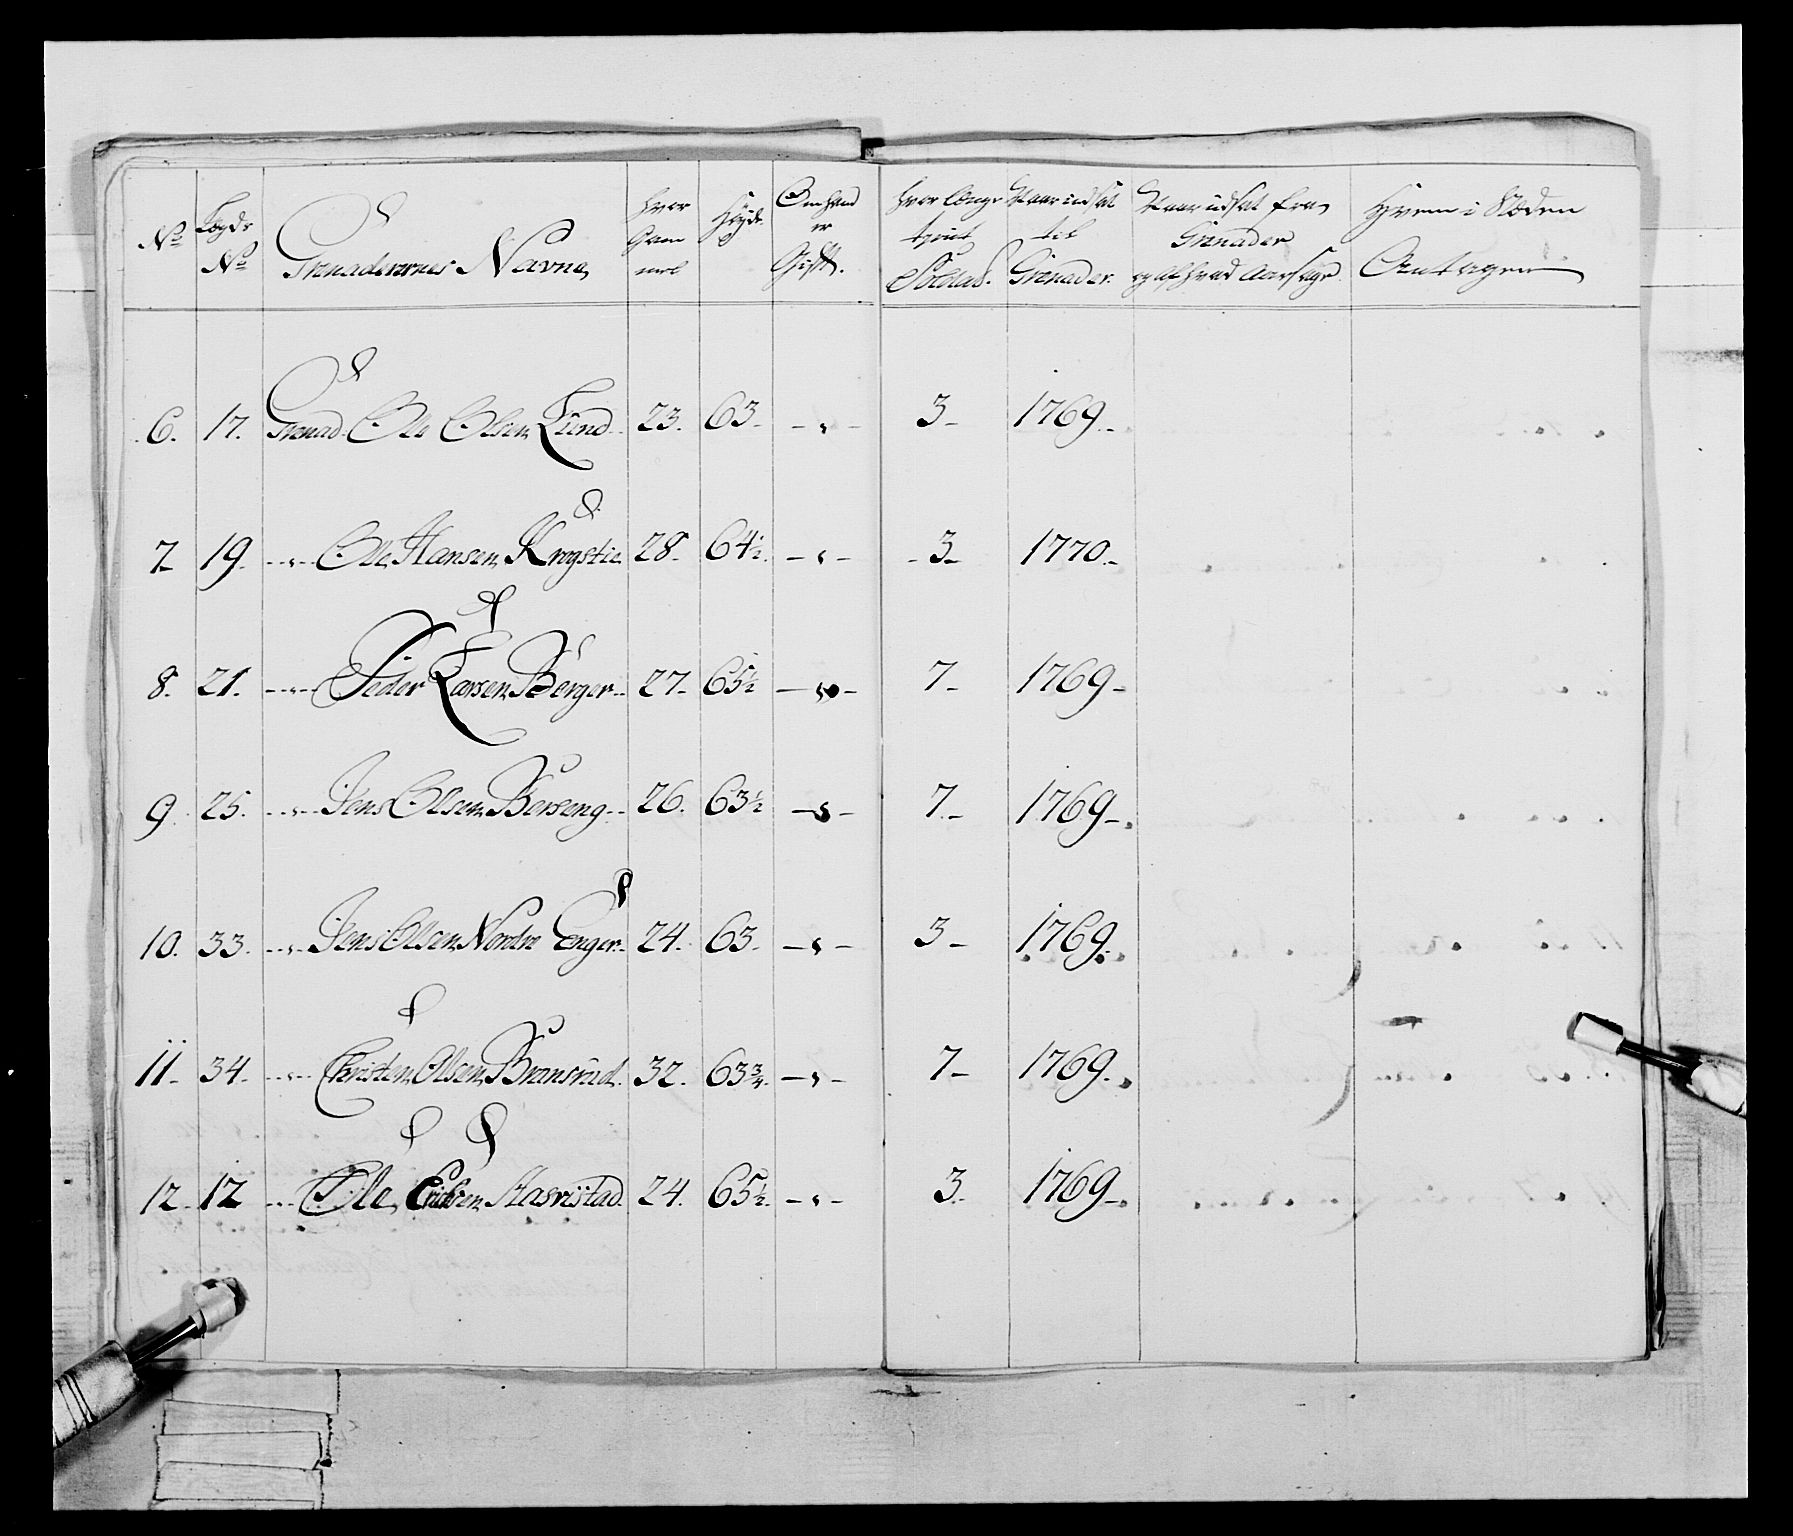 No Lægds No Grenaderernes Navne, Hvor Gammel Høyde Om hand er Gift. Hvor længe tient Soldat. Naar indsat til Grenader. Naar udsat fra Grenader og af hvad Aarsage Hvem i Stæden Antagen
6. 17. Grenad. Ole Olsen Lund 23. 63 - " - 3 - 1769.
7 19. - " - Ole Hansen Krogstie 28. 64½. - " - 3 - 1770.
8. 21. - " - Peder Larsen Berger 27 - 65½ - " - 7 - 1769 -
9. 25. - " - Jens Olsen Berseng 26. 63½ - " - 7 - 1769 -
10. 33. - " - Jens Olsen Nordre Enger 24. 63. - " - 3 - 1769.
11 - 34. - " - Christen Olsen Bransrud. 32. 63¾. - " - 7 - 1769.
12. 12 - " - Ole Erichsen 24. 65½. - " - 3. 1769 -